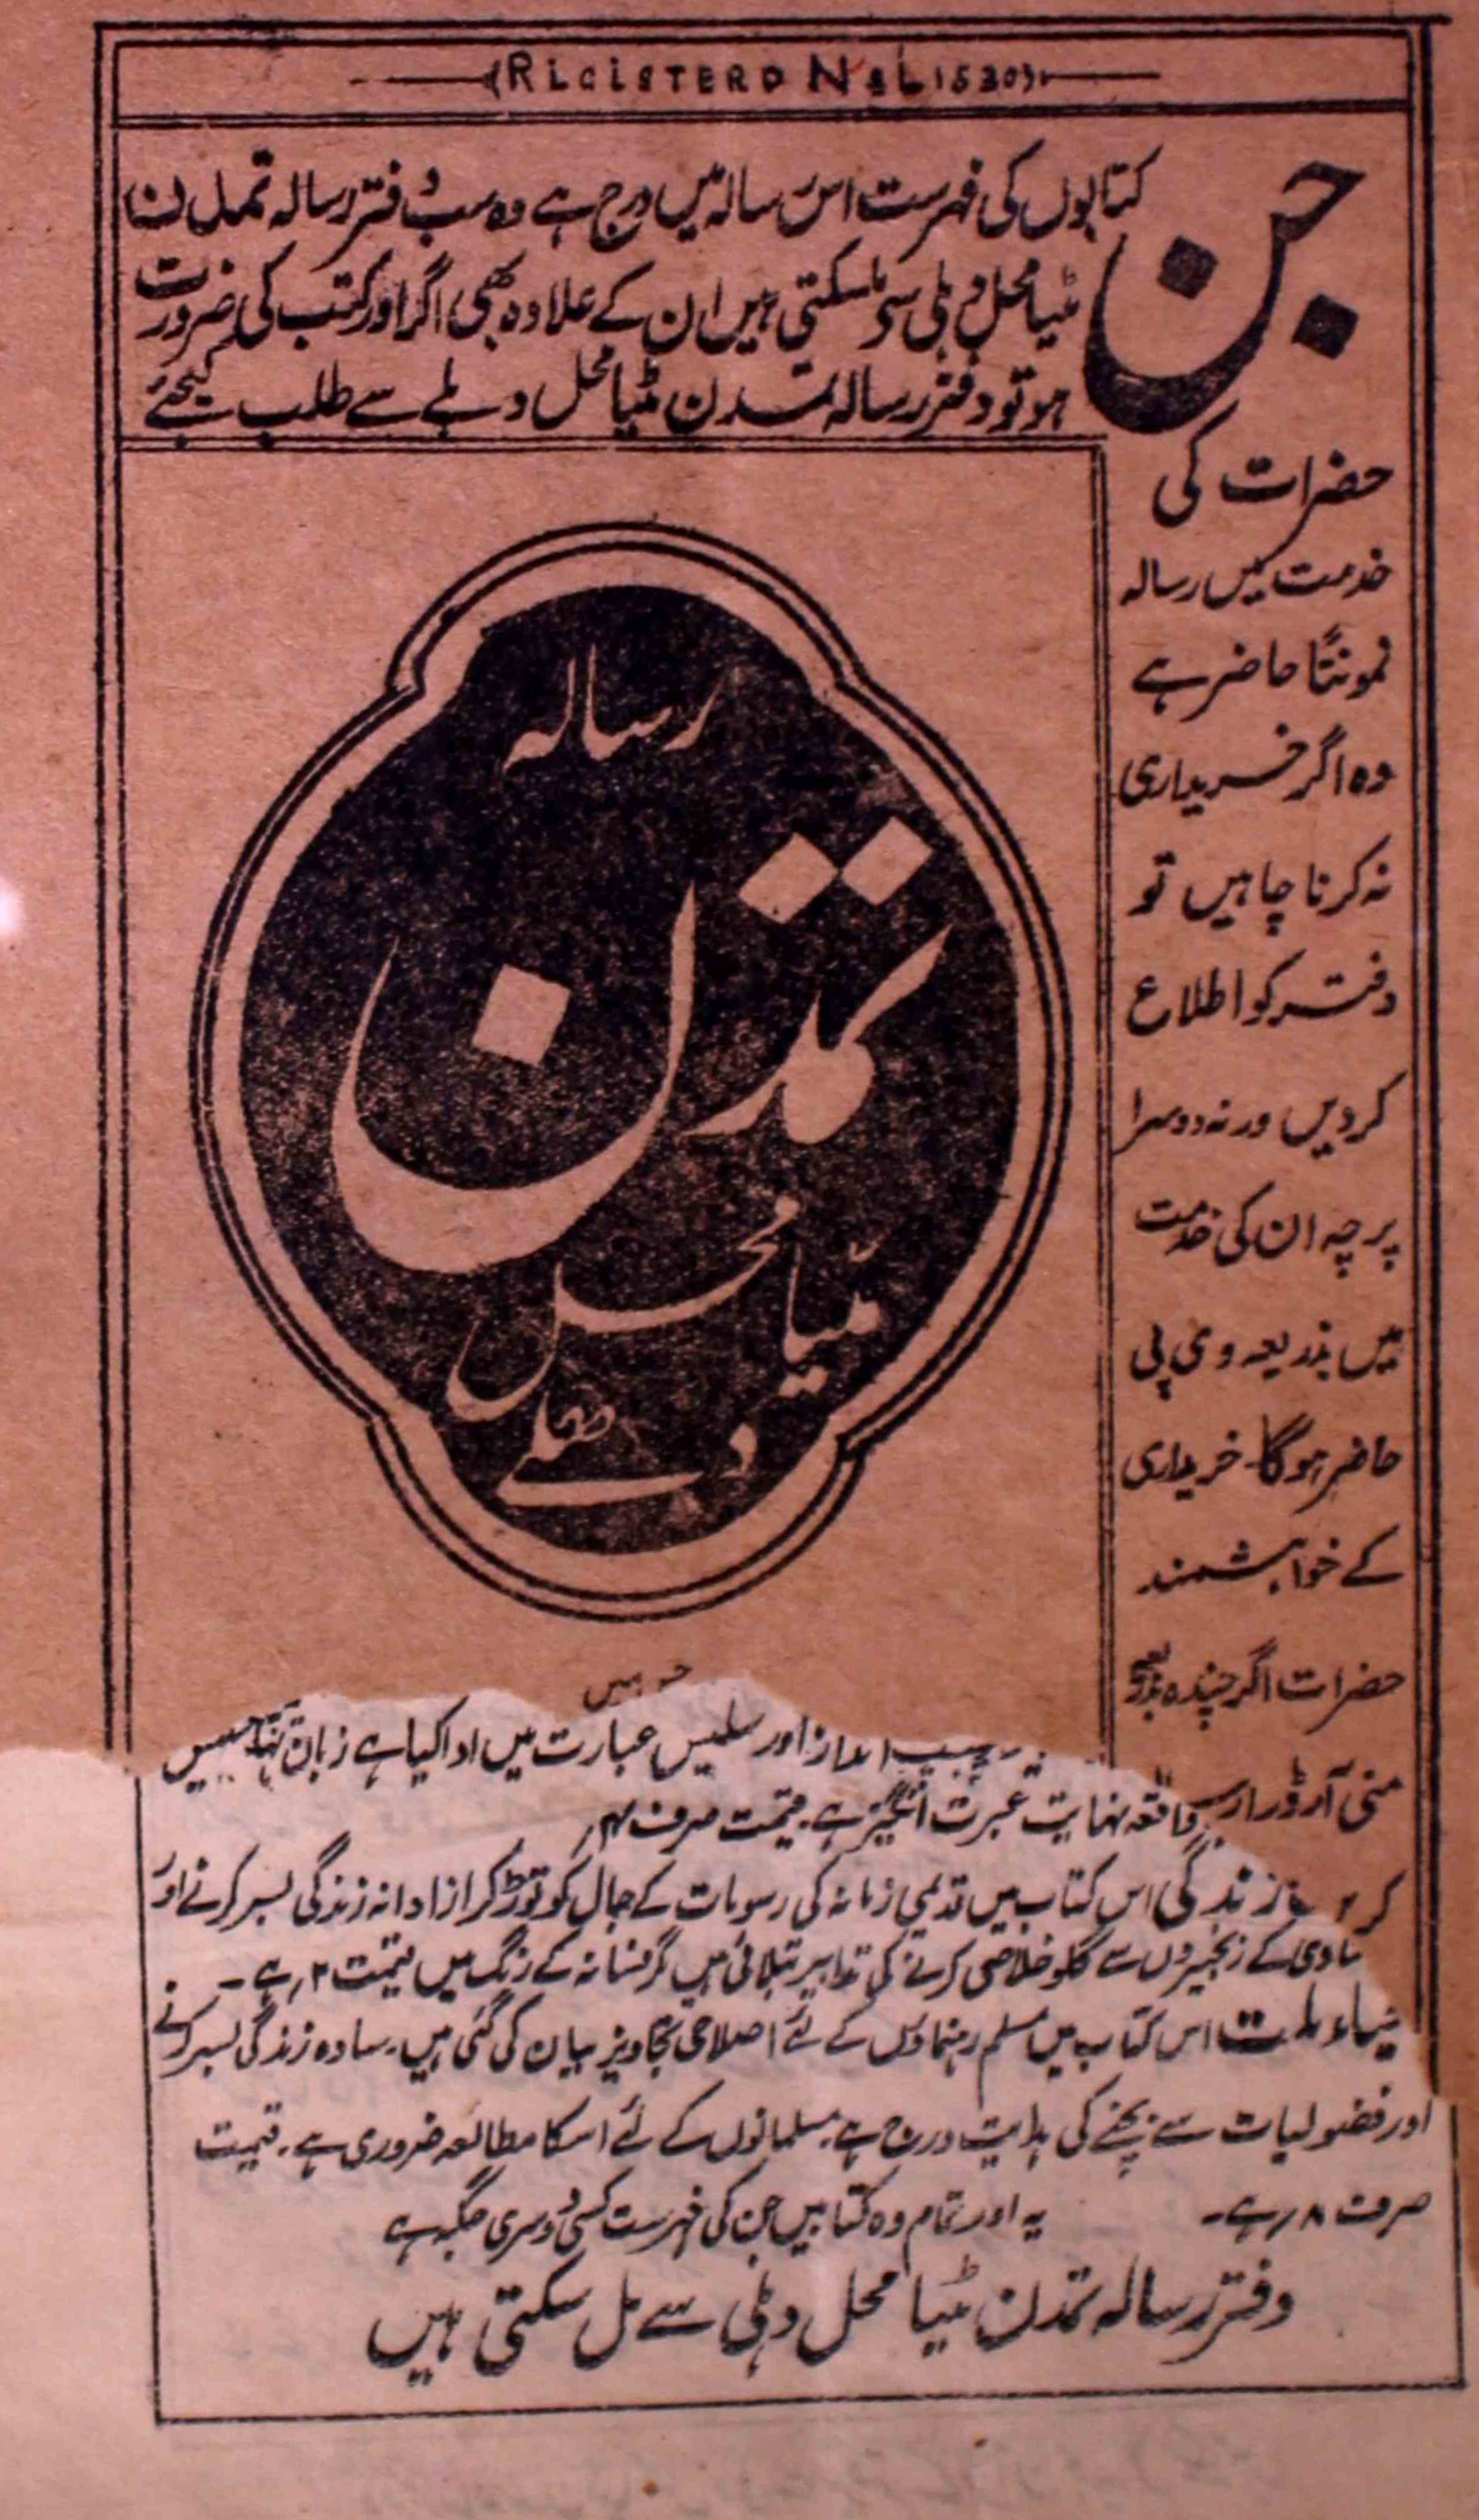 (RIGISTERD No L 1530)
جن
کتابوں کی فہرست اس رسالہ میں درج ہے وہ سب دفتر رسالہ تمدن
مٹیا محل دہلی سے مل سکتی ہیں ان کے علاوہ بھی اگر اور کتب کی ضرورت
ہو تو دفتر رسالہ تمدن مٹیا محل دہلی سے طلب کیجئے
حضرات کی
خدمت میں رسالہ
نمونتاً حاضر ہے
وہ اگر خریداری
نہ کرنا چاہیں تو
دفتر کو اطلاع
کردیں ورنہ دوسرا
پرچہ ان کی خدمت
میں بذریعہ وی پی
حاضر ہوگا۔ خریداری
کے خواہشمند
حضرات اگر چندہ بذریعہ
منی آرڈر ار
کر
رسالہ
تمدن
مٹیا محل
دہلی
جو ہمیں
انداز اور سلیس عبارت میں ادا کیا ہے زبان
واقعہ نہایت عبرت انگیز ہے۔ قیمت صرف ۴ر
زندگی اس کتاب میں قدیمی زمانہ کی رسومات کے جال کو توڑ کر ازادانہ زندگی بسر کرنے اور
کے زنجیروں سے گلو خلاصی کرنے کی تدابیر بتلائی ہیں مگر فسانہ کے رنگ میں قیمت ۲ر ہے۔
ملت اس کتاب میں مسلم رہنماؤں کے لئے اصلاحی تجاویز بیان کی گئی ہیں۔ سادہ زندگی بسر کرنے
اور فضولیات سے بچنے کی ہدایت درج ہے۔ مسلمانوں کے لئے اسکا مطالعہ ضروری ہے۔ قیمت
صرف ۸ر ہے۔ یہ اور تمام وہ کتابیں جن کی فہرست کسی دوسری جگہ ہے
دفتر رسالہ تمدن مٹیا محل دہلی سے مل سکتی ہیں